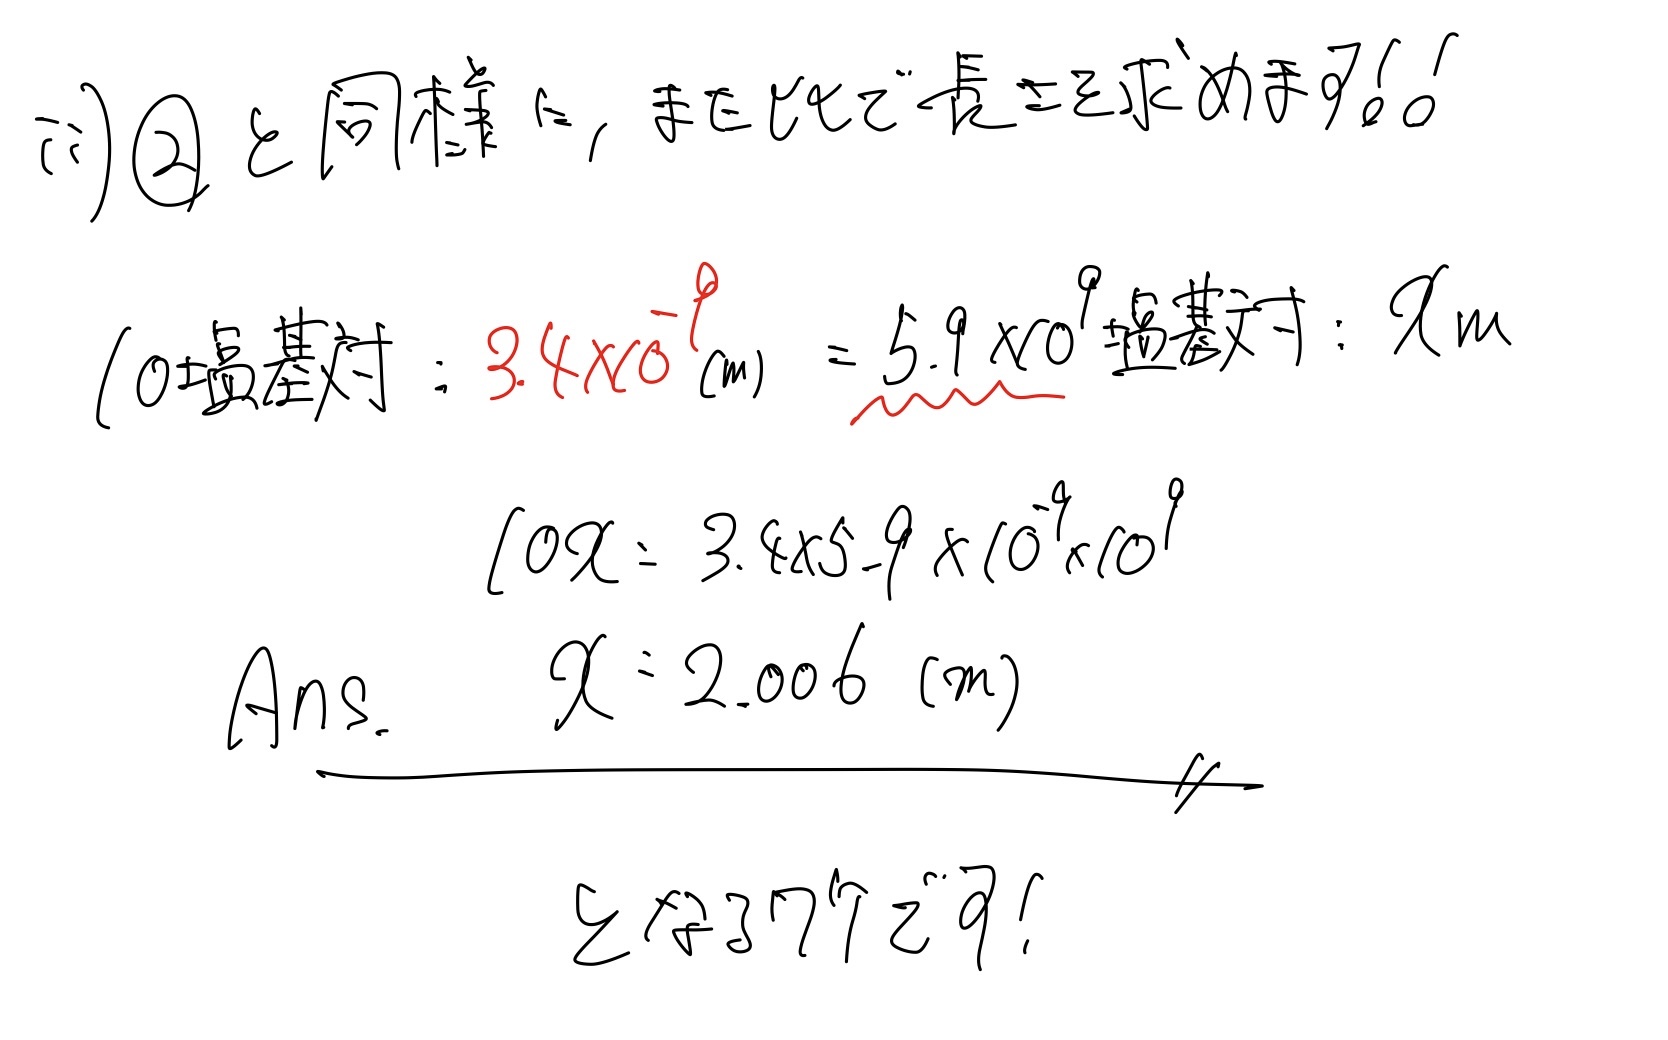 ii) ② と同様に, また比で長さを求めます!!
10塩基対 : 3.4×10⁻⁹ (m) = 5.9×10⁹塩基対 : x m
10x = 3.4×5.9×10⁻⁹×10⁹
Ans. x = 2.006 (m)
となるワケです!